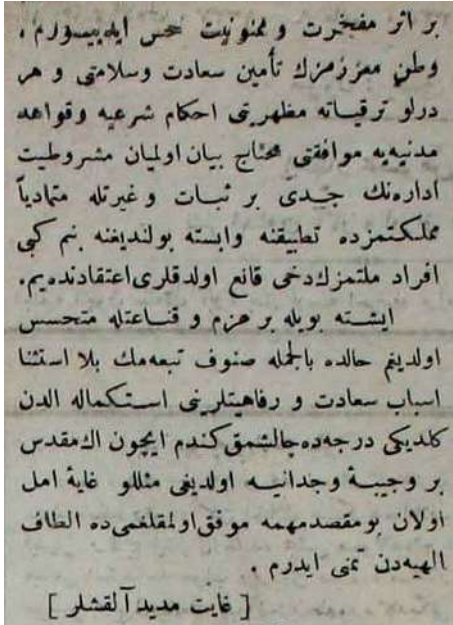 بر اثر مفخرت و ممنونيت حس ايده‌بيليورم ،
وطن معززمزك تأمين سعادت وسلامتى و هر
درلو ترقياته مظهريتى احكام شرعيه وقواعد
مدنيه‌يه موافقتى محتاج بيان اولميان مشروطيت
اداره‌نك جدى بر ثبات و غيرتله متمادياً
مملكتمزده تطبيقنه وابسته بولنديغنه بنم كبى
افراد ملتمزك دخى قانع اولدقلرى اعتقادنده‌يم.
ايشته بويله بر عزم و قناعتله متحسس
اولديغم حالده بالجمله صنوف تبعه‌مك بلا استثنا
اسباب سعادت و رفاهيتلرينى استكماله الدن
كلديكى درجه‌ده چالشمق كندم ايچون اك مقدس
بر وجيبۀ وجدانيه اولديغى مثللو غايۀ امل
اولان بو مقصد مهمه موفق اولمقلغمى ده الطاف
الهيه‌دن تمنى ايدرم .
[ غايت مديد آلقشلر ]